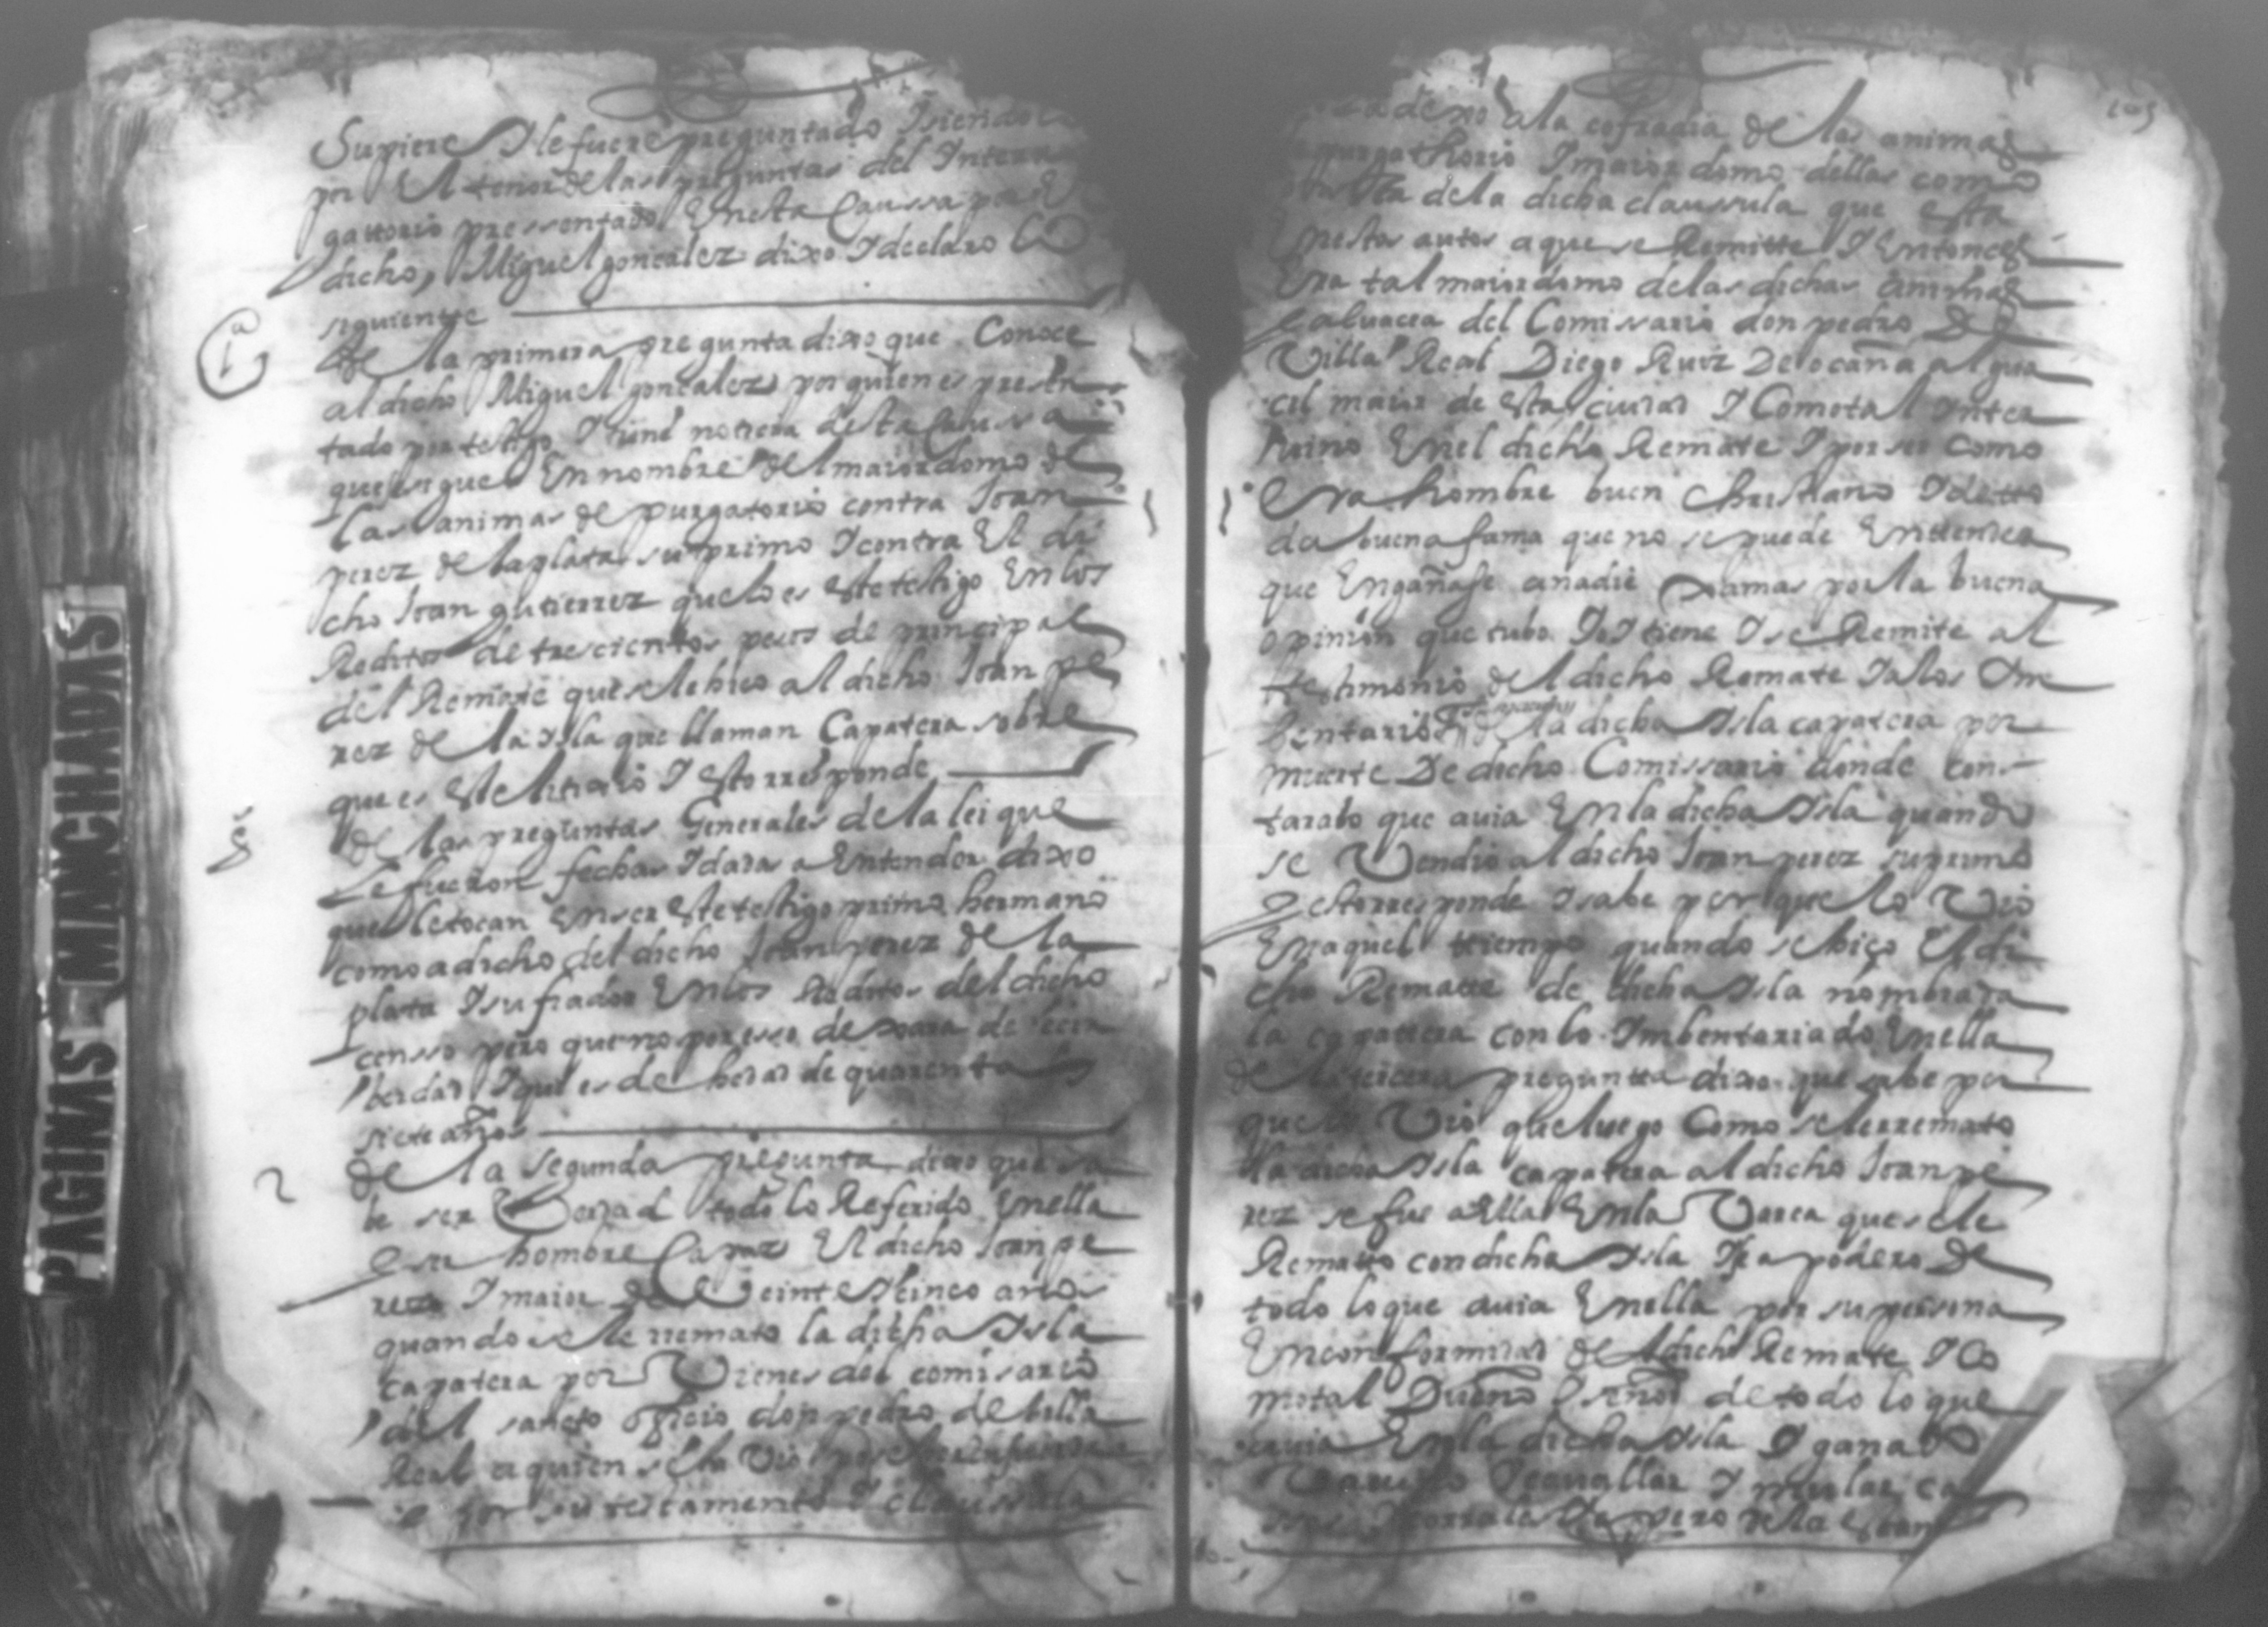 Supiere I le fuere preguntado I siendo
por El tenor de las preguntas del Interro
gattorio pressentado En esta Caussa por El
dicho, Miguel gonçalez dixo I declaro lo
siguiente
1ª
de la primera pregunta dixo que Conoce
al dicho Miguel gonçalez por quien es presen
tado por testigo I tiene noticia desta Caussa
que sigue En nombre del maiordomo de
las animas de purgatorio contra Joan
perez de la plata su primo I contra El di
cho Joan gutierrez que lo es este testigo En los
Reditos de trescientos pesos de principal
del Remate que se le hiço al dicho Joan pe
rez de la Isla que llaman Çapatera sobre
que es este litixio I esto rresponde
de las preguntas Generales de la lei que
Le fueron fechas I dadas a Entender dixo
que le tocan En ser este testigo primo hermano
como a dicho del dicho Joan perez de la
plata I su fiador En los Reditos del dicho
censso pero que no por esso dexara de decir
berdad I que es de hedad de quarenta I
siete años
2
de la segunda pregunta dixo que sa
be ser Verdad todo lo Referido Enella
era hombre Capaz El dicho Joan pe
rez I maior de Veinte I cinco años
quando se le rremato la dicha Isla
çapatera por Vienes del comisario
del sancto oficio don pedro de billa
Real a quien se la Vio
por su testamento I claussula
105
dexo a la cofradia de las animas
purgathorio I maiordomo dellas como
consta de la dicha claussula que esta
Enestos autos a que se Remitte I Entonces
Era tal maiordomo de las dichas animas
e albacea del Comissario don pedro de
Villa Real Diego Ruiz De ocaña algua
cil maior de esta ciudad I Como tal Inter
bino Enel dicho Remate I por ser como
Era hombre buen christiano I de tto
da buena fama que no se puede Enttender
que Engañase a nadie Jamas por la buena
opinion que tubo I oI tiene I se Remite al
testimonio del dicho Remate I a los Im
bentarios de la dicha Isla çapatera por
muerte De dicho Comissario donde cons
tara lo que avia En la dicha Isla quando
se Vendio al dicho Joan perez su primo
I esto rresponde I sabe porque lo Vio
En aquel tiempo quando se hiço El di
cho Remate de dicha Isla nombrada
la çapatera con lo Imbentariado Enella
de la tercera pregunta dixo que sabe por
que lo Vio que luego Como se le rremato
la dicha Isla çapatera al dicho Joan pe
rez se fue a Ella En la Varca que se le
Remato con dicha Isla I se apodero de
todo lo que avia Enella por su persona
En conformidad del dicho Remate I Co
mo tal Dueño I señor de todo lo que
avia En la dicha Isla I ganado
Vacuno I cavallar I mular ca